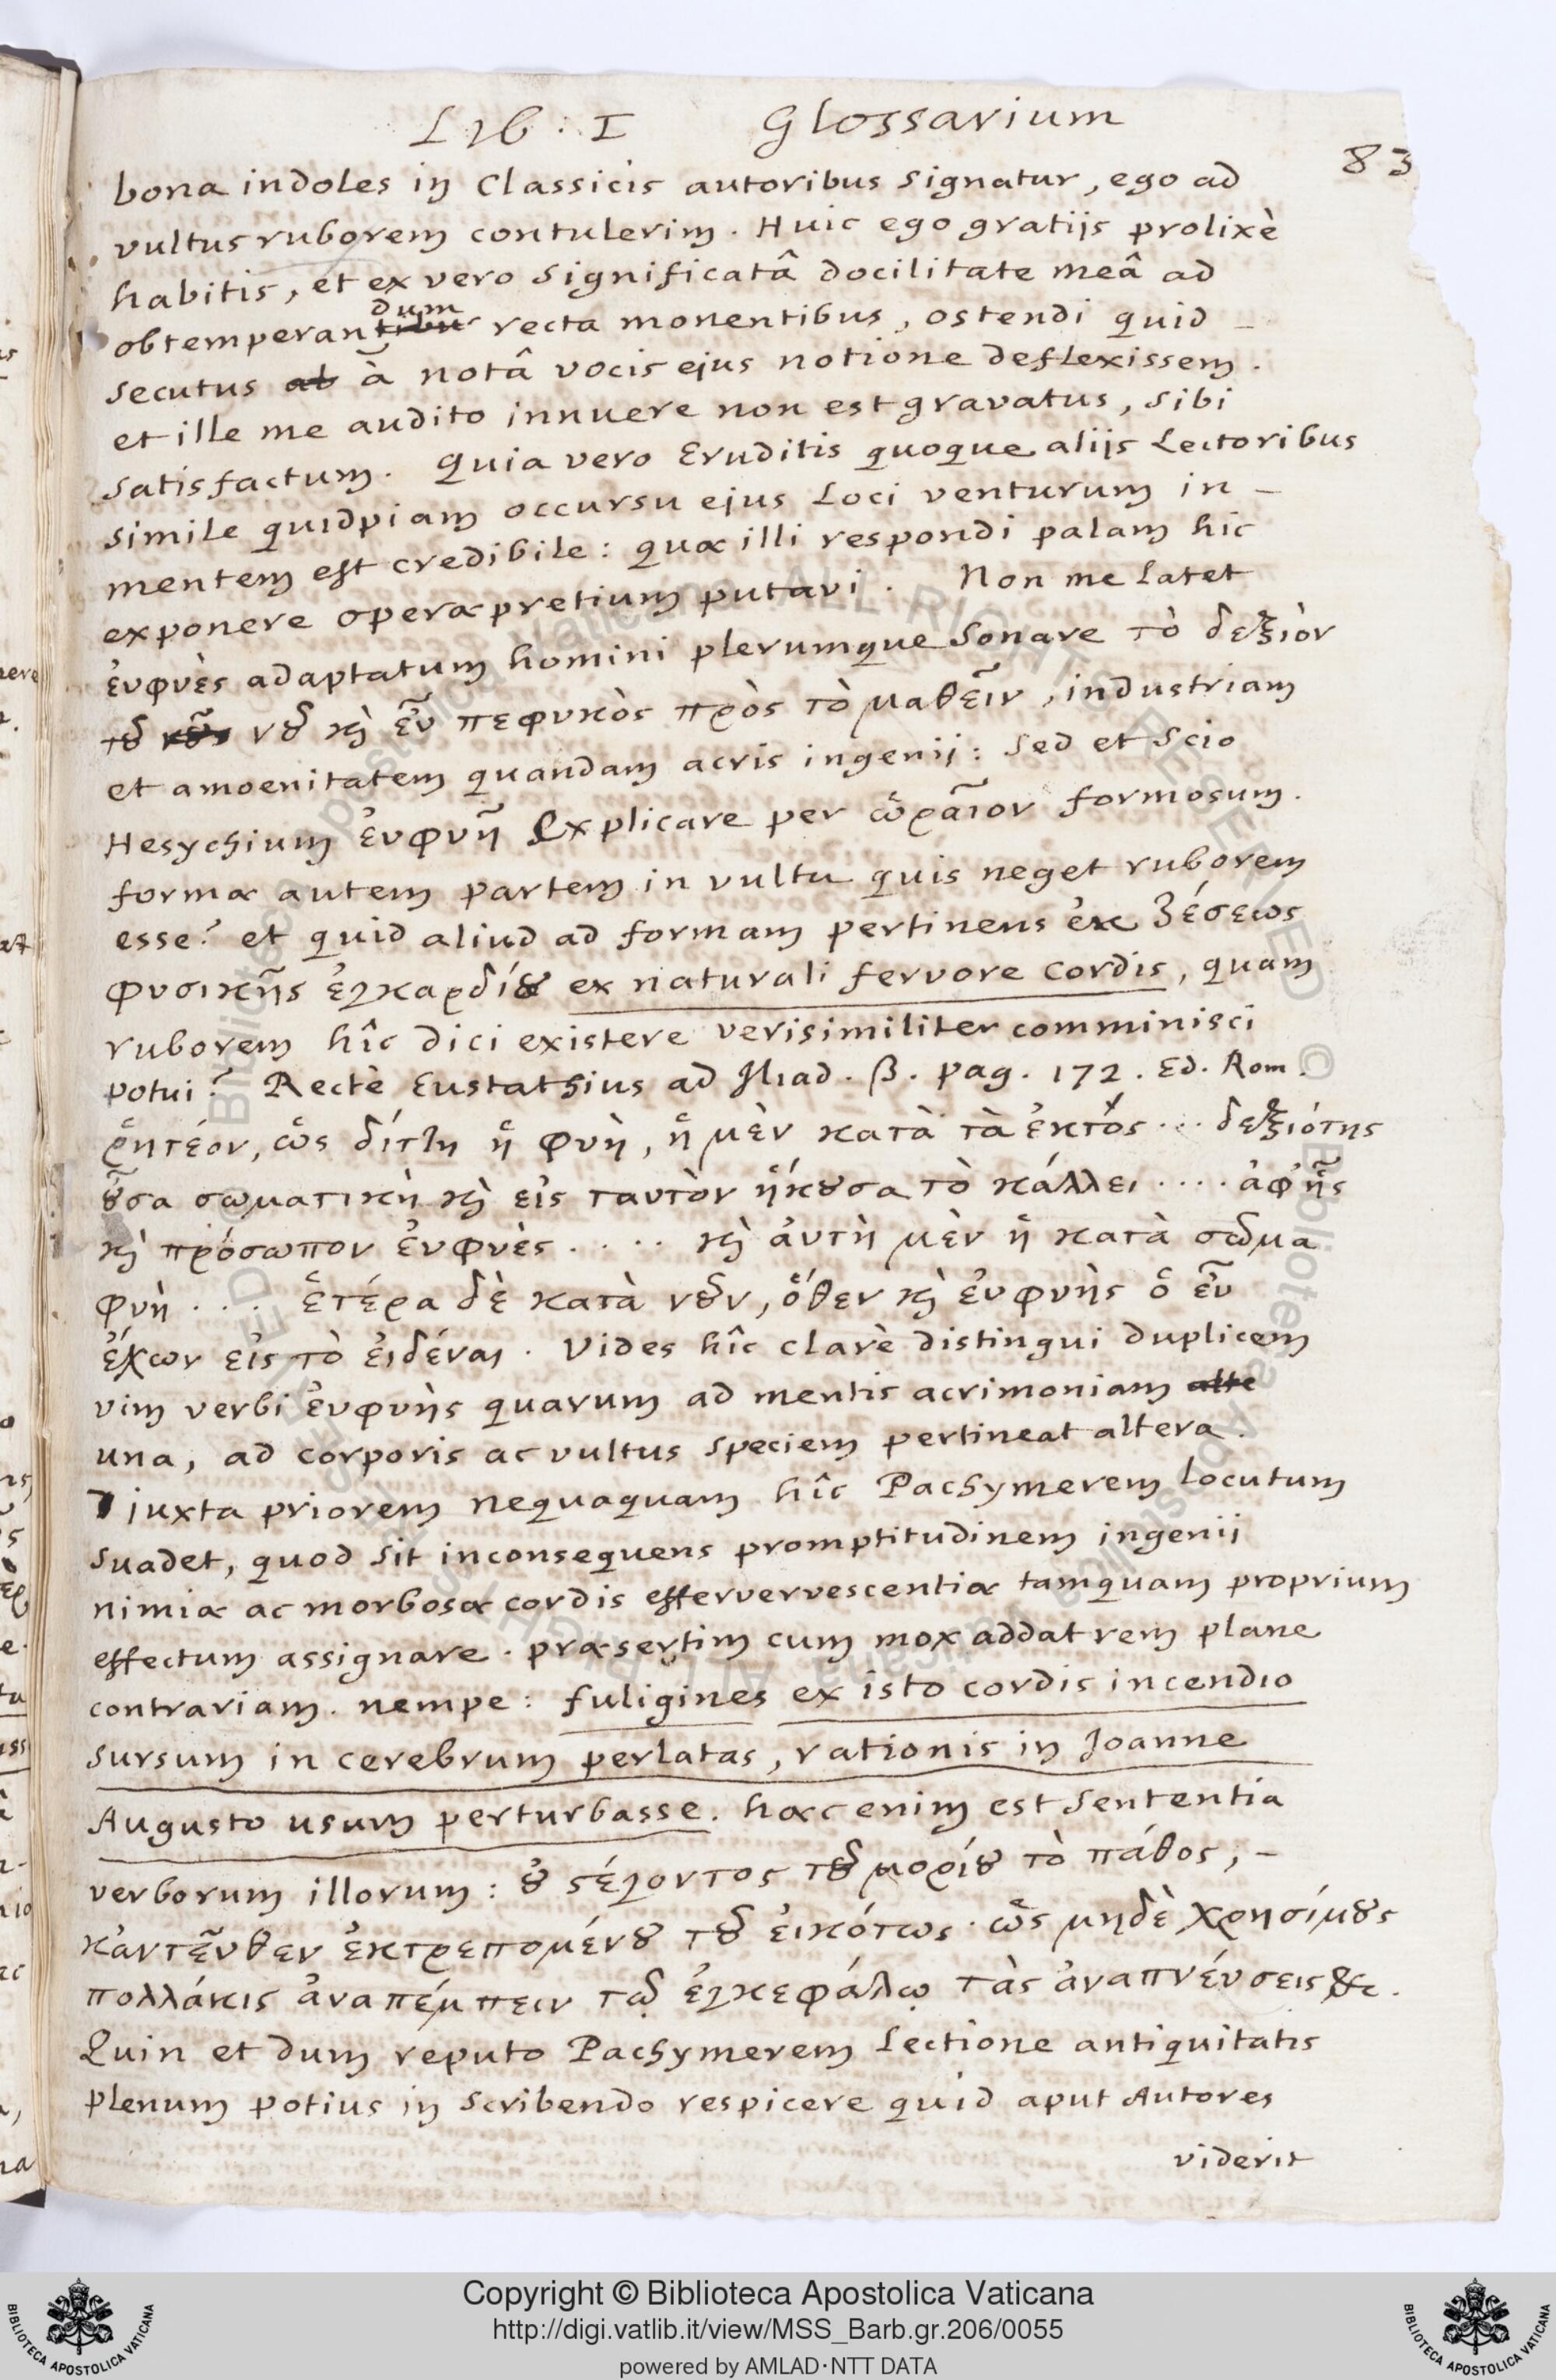 Lib : I Glossarium
83
bona indoles in Classicis autoribus signatur, ego ad
vultus ruborem contulerim. Huic ego gratijs prolixè
habitis, et ex vero significatâ docilitate meâ ad
dum
obtemperantibus recta monentibus, ostendi quid
secutus ab à notâ vocis ejus notione deflexissem.
et ille me audito innuere non est gravatus, sibi
satisfactum. Quia vero Eruditis quoque alijs Lectoribus
simile quidpiam occursu ejus Loci venturum in-
mentem est credibile: quæ illi respondi palam hic
exponere operæ pretium putavi. Non me latet
ἐυφυὲς adaptatum homini plerumque sonare τὸ δεξιὸν
τȣ͂ νȣ͂ κὴ ἐῦ πεφυκὸς πρὸς τὸ μαθεῖν, industriam
et amoenitatem quandam acris ingenij: sed et scio
Hesychium ἐυφυῆ Explicare per ὡραῖον formosum.
formæ autem partem in vultu quis neget ruborem
esse? et quid aliud ad formam pertinens ἐκ ζέσεως
φυσικῆς ἐγκαρδίȣ ex naturali fervore cordis, quam
ruborem hîc dici existere verisimiliter comminisci
potui? Rectè Eustathius ad Iliad. β. pag. 172. Ed. Rom.
ῥητέον, ὡς δίττη ἡ φυὴ, ἡ μὲν κατὰ τὰ ἐκτὸς ... δεξιότης
ȣ͂σα σωματικὴ κὴ εἰς ταυτὸν ἥκȣσα τὸ κάλλει .... ἀφ' ἧς
κὴ πρόσωπον ἐυφυὲς .... κὴ ἀυτὴ μὲν ἡ κατὰ σῶμα
φυὴ .... ἑτέρα δὲ κατὰ νȣ͂ν, ὅθεν κὴ ἐυφυὴς ὁ ἐῦ
ἔχων εἰς τὸ ἐιδέναι. Vides hîc clarè distingui duplicem
vim verbi ἐυφυὴς quarum ad mentis acrimoniam alte
una, ad corporis ac vultus speciem pertineat altera.
juxta priorem nequaquam hîc Pachymerem locutum
suadet, quod sit inconsequens promptitudinem ingenii
nimiæ ac morbosæ cordis effervervescentiæ tamquam proprium
effectum assignare. præsertim cum mox addat rem plane
contrariam. nempe: fuligines ex isto cordis incendio
sursum in cerebrum perlatas, rationis in Joanne
Augusto usum perturbasse. hæc enim est sententia
verborum illorum: ȣ ϛέγοντος τȣ͂ μορίȣ τὸ πάθος, -
κἀντεῦθεν ἐκτρεπομένȣ τȣ͂ ἐικότως. ὡς μηδὲ χρησίμȣς
πολλάκις ἀναπέμπειν τῷ ἐγκεφάλῳ τὰς ἀναπνέυσεις &c.
Quin et dum reputo Pachymerem lectione antiquitatis
plenum potius in scribendo respicere quid aput Autores
viderit
Copyright © Biblioteca Apostolica Vaticana
http://digi.vatlib.it/view/MSS_Barb.gr.206/0055
powered by AMLAD·NTT DATA